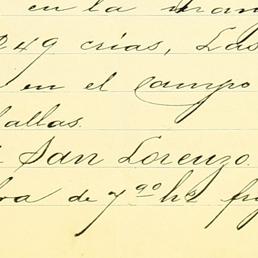 en la
249 crías, Las
en el campo
fallas.
San Lorenzo.
de 7 90 hs